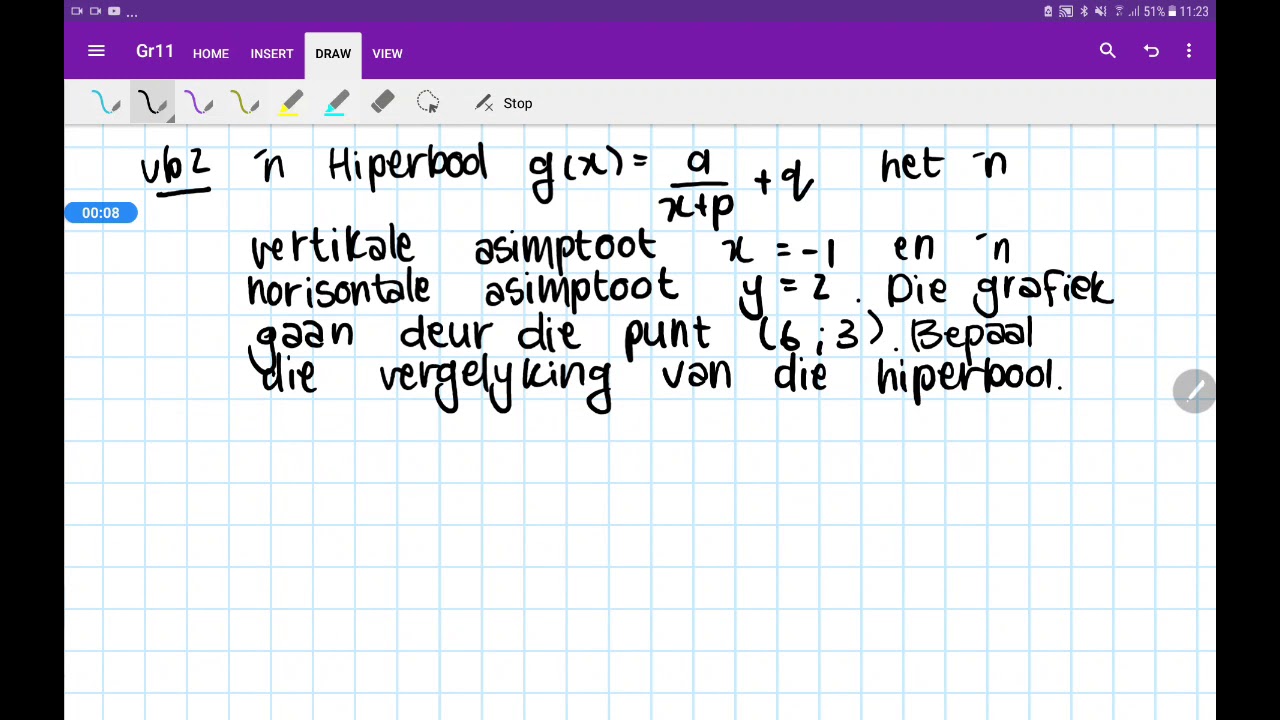 ... 51% 11:23
Gr11 HOME INSERT DRAW VIEW
Stop
vb2 'n Hiperbool g(x) = a/(x+p) + q het 'n
00:08
vertikale asimptoot x = -1 en 'n
horisontale asimptoot y = 2. Die grafiek
gaan deur die punt (6 ; 3). Bepaal
die vergelyking van die hiperbool.